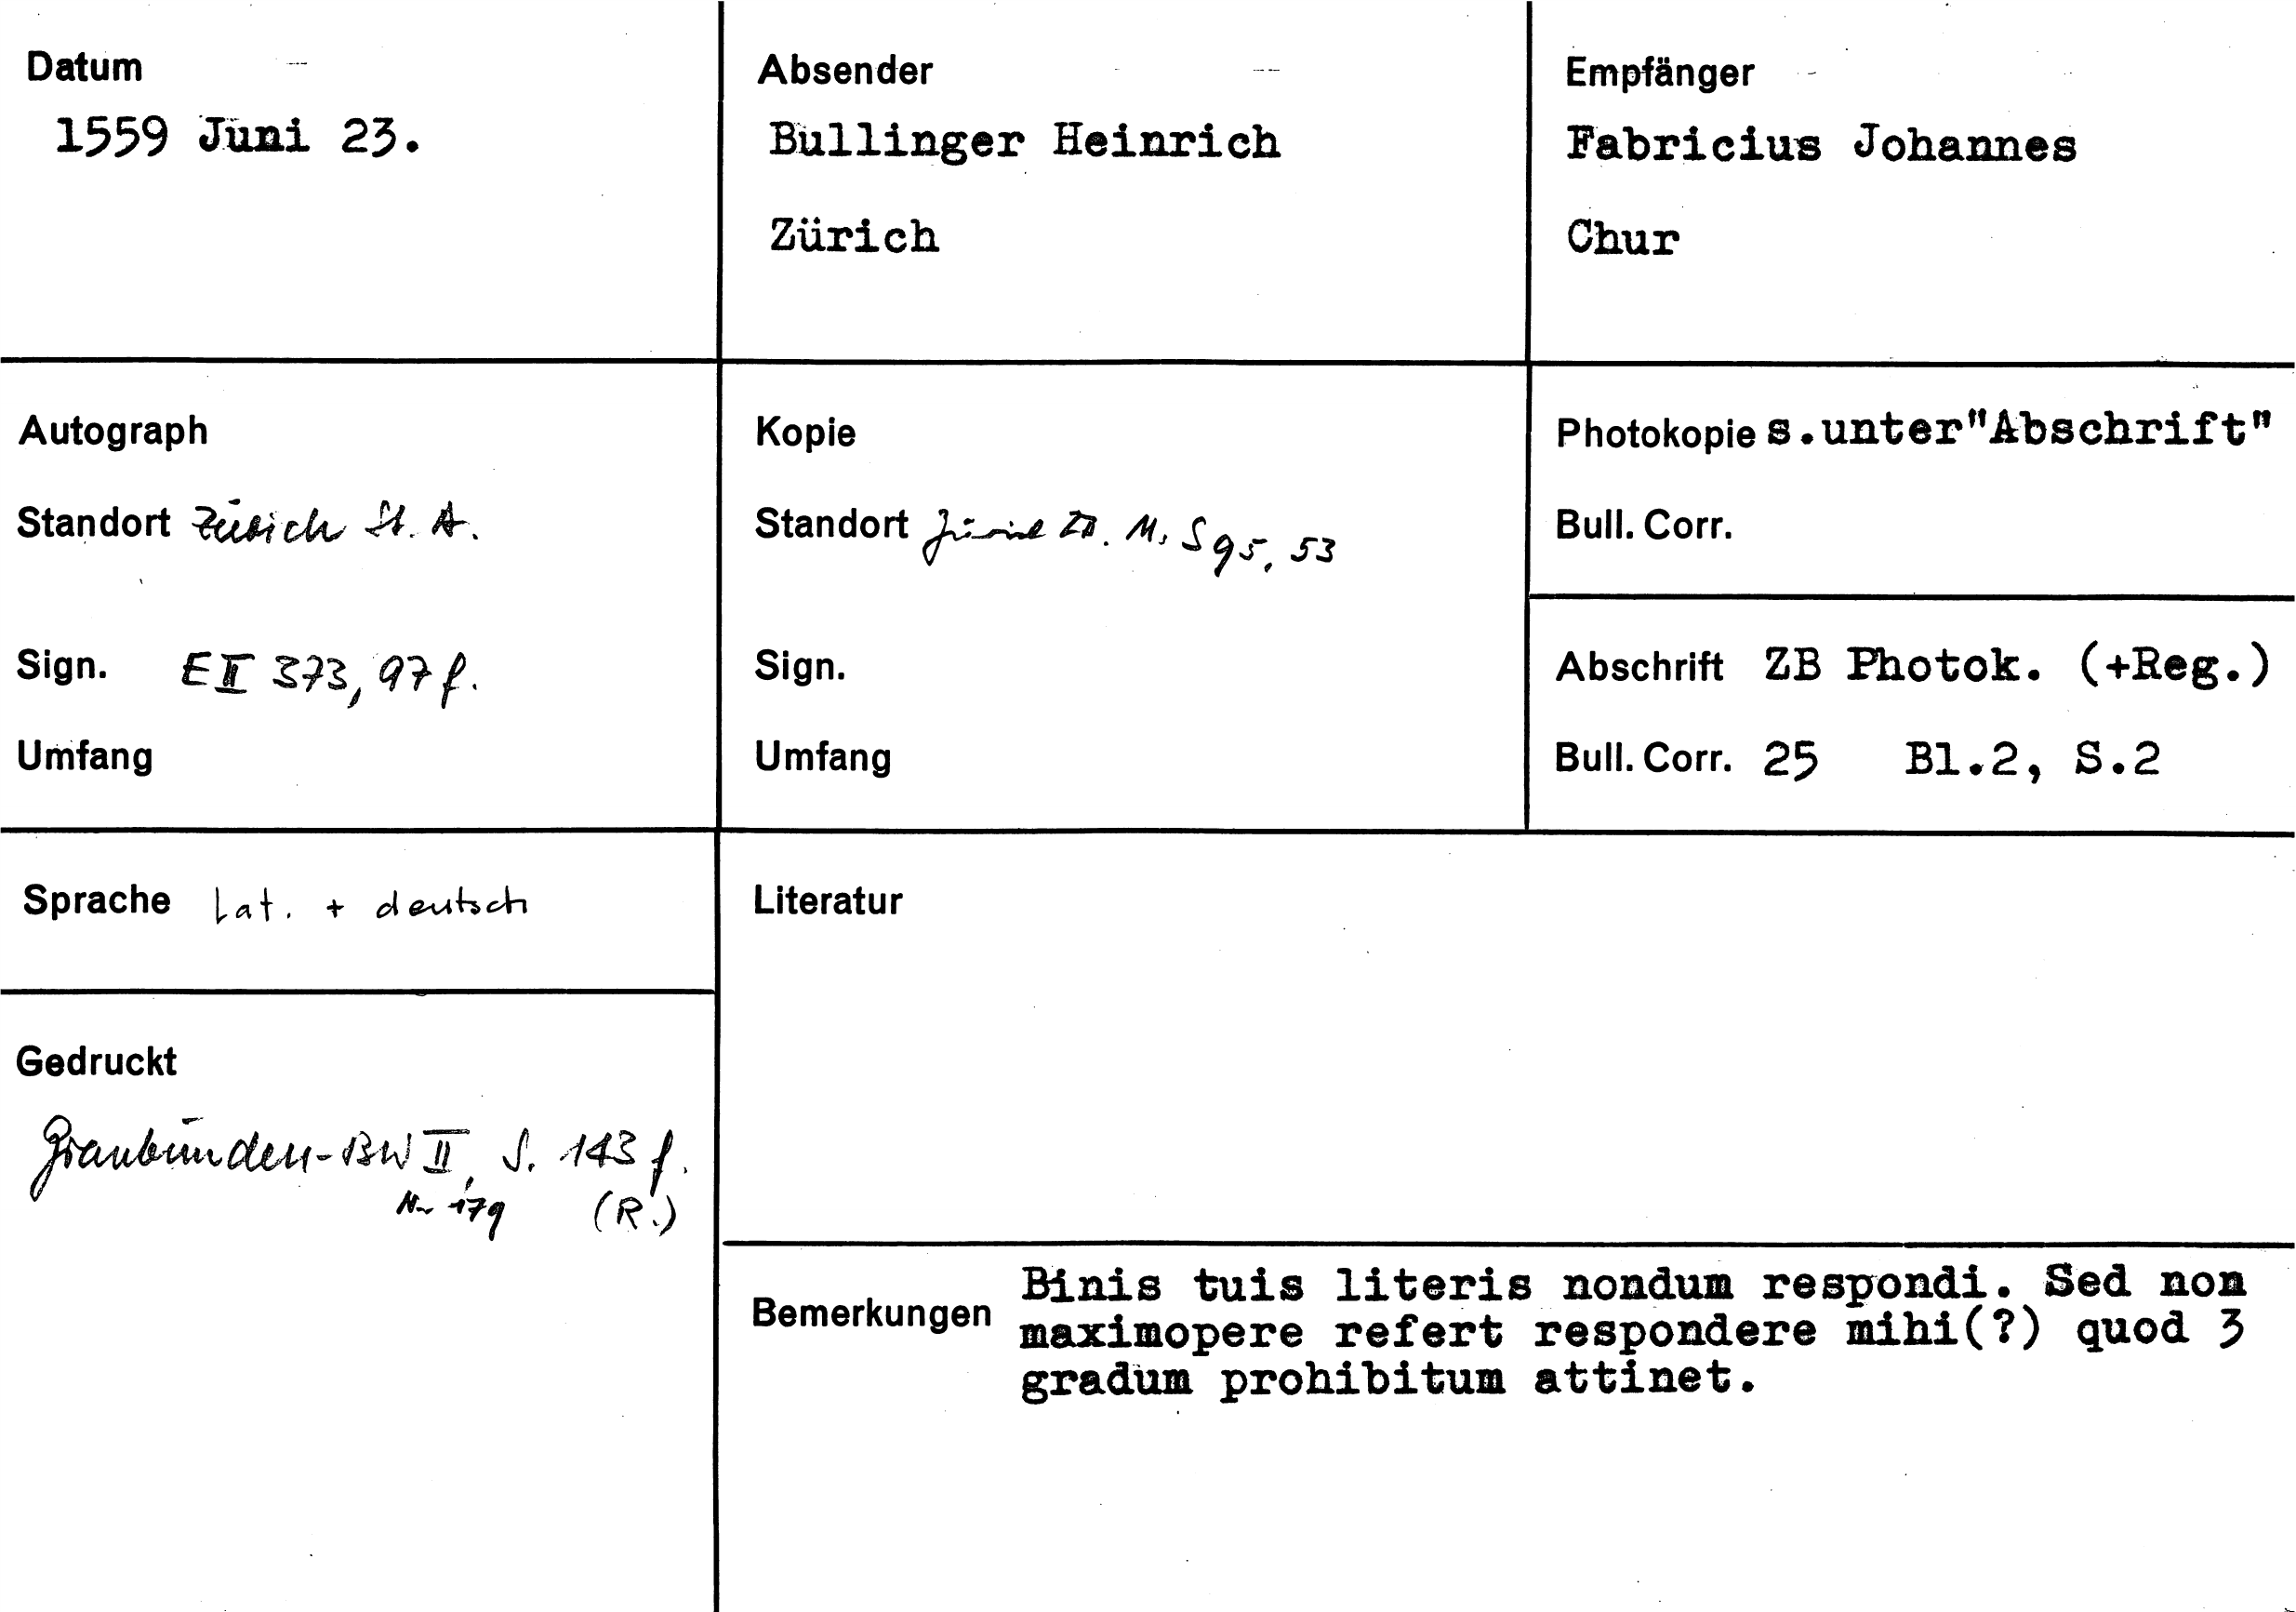 Datum
1559 Juni 23.
Absender
Bullinger Heinrich
Zürich
Empfänger
Fabricius Johannes
Chur
Autograph
Standort Zürich St. A.
Sign. E II 373, 97 f.
Umfang
Kopie
Standort Zürich ZB. Ms S 95, 53
Sign.
Umfang
Photokopie s.unter"Abschrift"
Bull. Corr.
Abschrift ZB Photok. (+Reg.)
Bull. Corr. 25 Bl.2, S.2
Sprache Lat. + deutsch
Literatur
Gedruckt
Graubünden-BW II, S. 143 f.
Nr 179 (R.)
Bemerkungen
Binis tuis literis nondum respondi. Sed non
maximopere refert respondere mihi(?) quod 3
gradum prohibitum attinet.